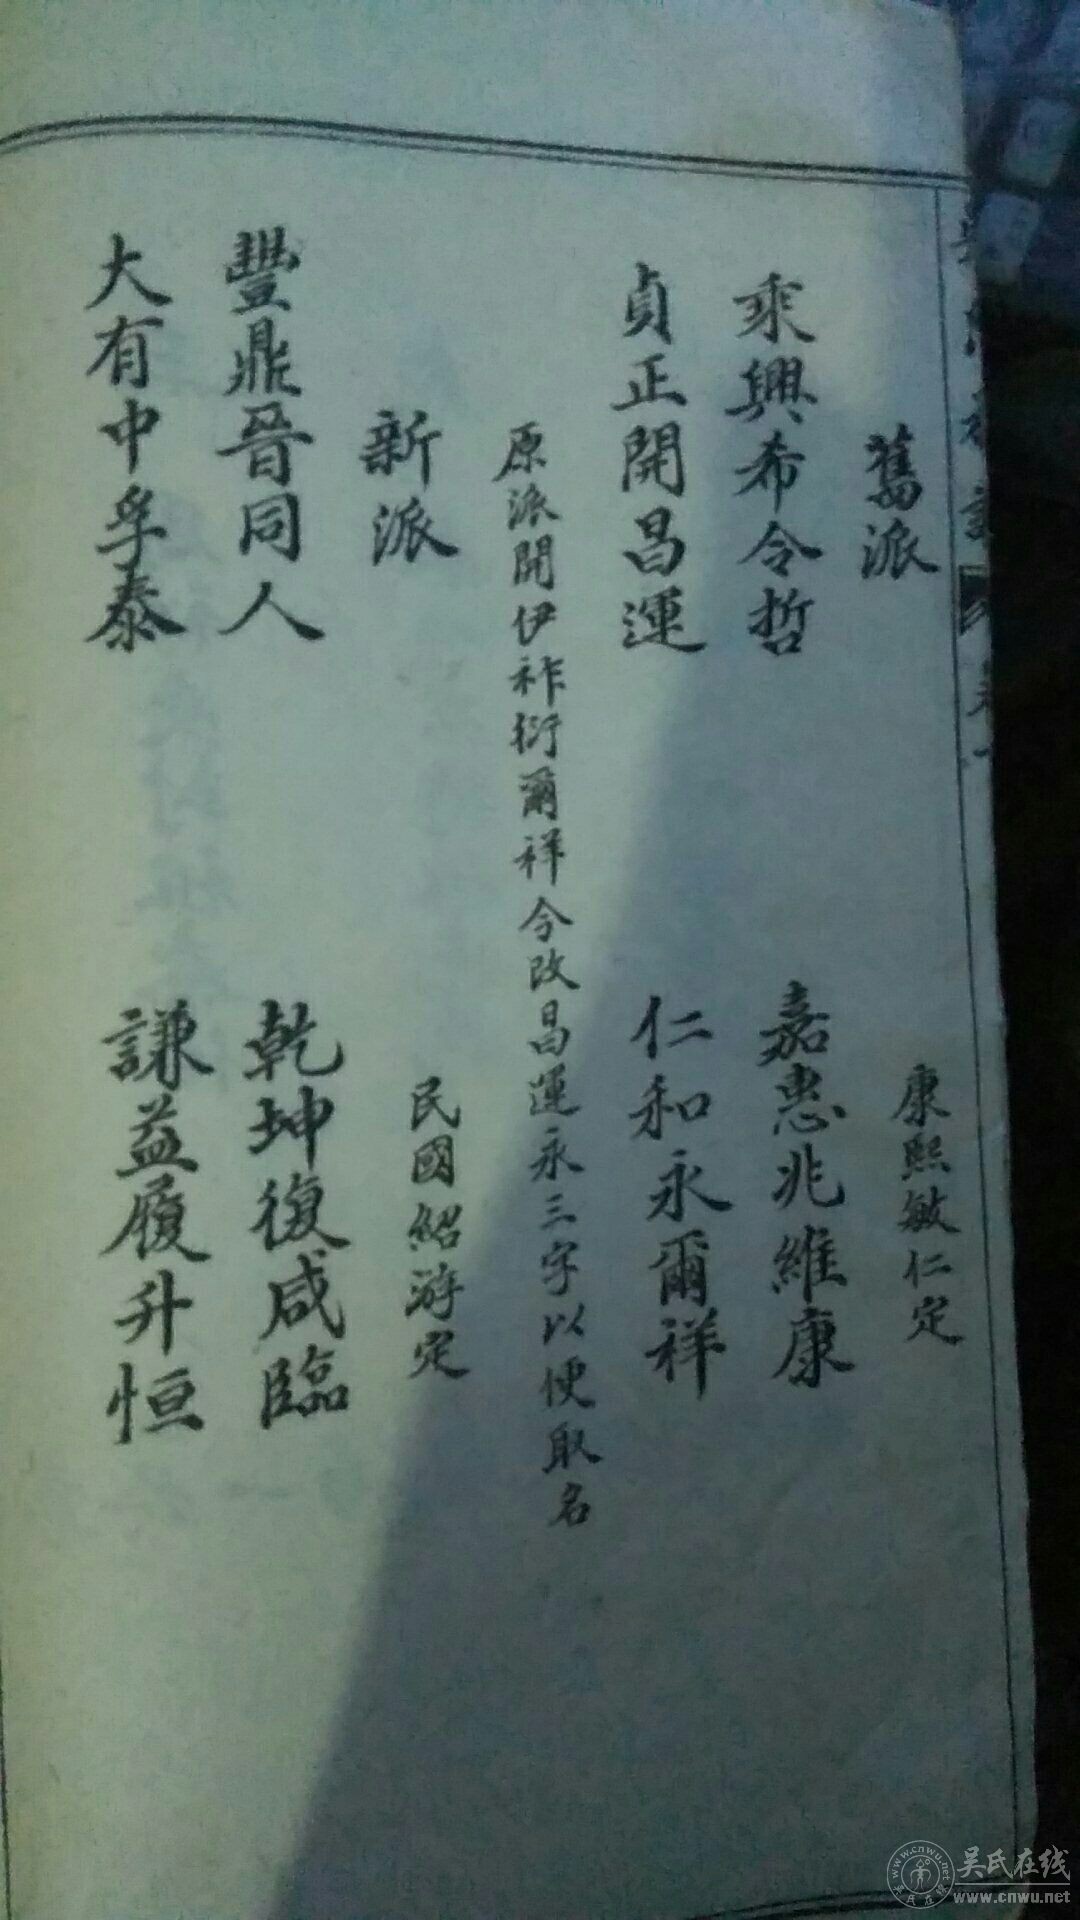 舊派　康熙敏仁定
乘興希令哲　嘉惠兆維康
貞正開昌運　仁和永爾祥
原派開伊祚衍爾祥今改昌運永三字以便取名
新派　民國紹游定
豐鼎晉同人　乾坤復咸臨
大有中孚泰　謙益履升恒
吴氏在线
www.cnwu.net